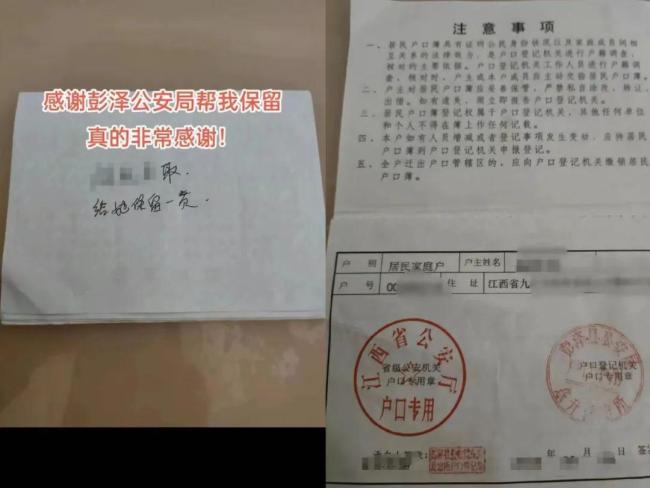 感谢彭泽公安局帮我保留
真的非常感谢!
取.
给她保留一页.
注意事项
一、居民户口簿具有证明公民身份状况以及家庭成员间相
互关系的法律效力，是户口登记机关进行户籍调查、
核对的主要依据。户口登记机关工作人员进行户籍调
查、核对时，户主或本户成员应主动交验居民户口簿。
二、户主对居民户口簿应妥善保管，严禁私自涂改、转让、
出借。如有遗失，须立即报告户口登记机关。
三、居民户口簿登记权属于户口登记机关，其他任何单位
和个人不得在簿上作任何记载。
四、本户如有人员增减或者登记事项发生变动，应持居民
户口簿到户口登记机关申报登记。
五、全户迁出户口管辖区的，应向户口登记机关缴销居民
户口簿。
户别 居民家庭户 户主姓名
户号 00 住址 江西省九
江西省公安厅
省级公安机关
户口专用章
户口专用
彭泽县公安局
户口登记机关
户口专用章
年 月 日